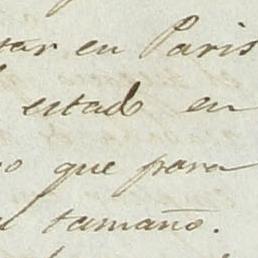 en Paris
estado en
que para
tamaño.